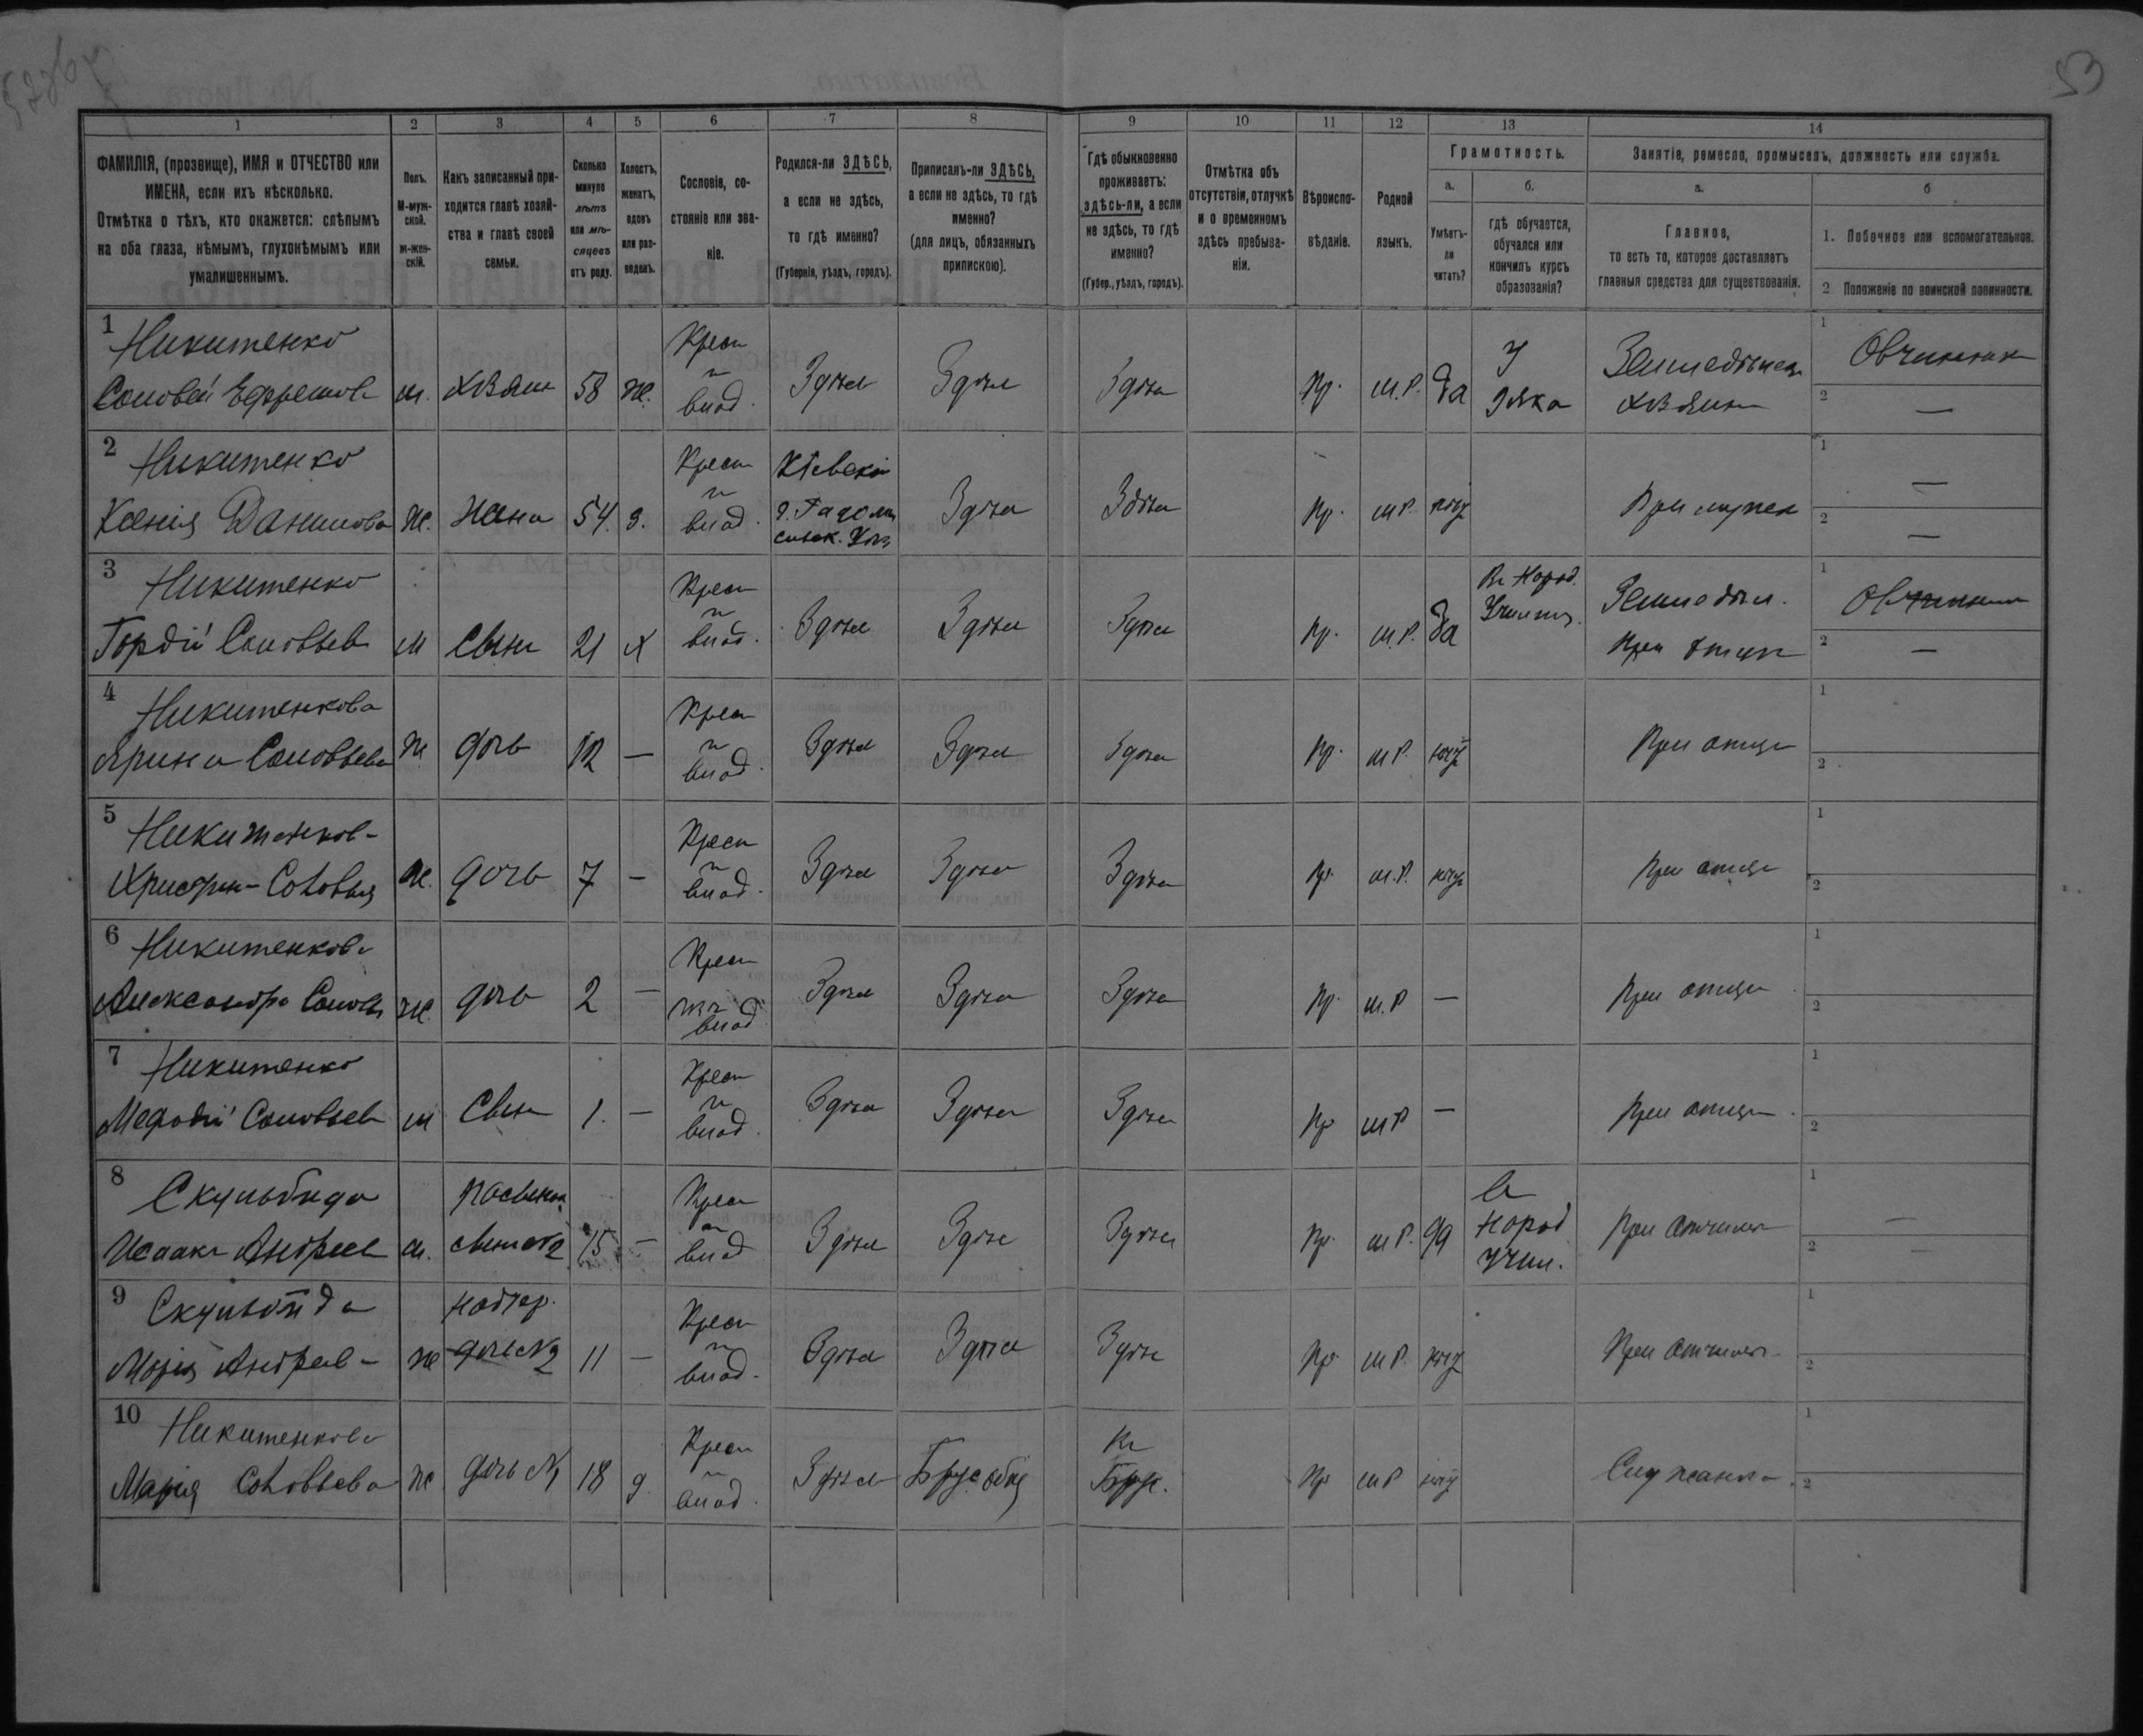 53
1 2 3 4 5 6 7 8 9 10 11 12 13 14
ФАМИЛІЯ, (прозвище), ИМЯ и ОТЧЕСТВО или
ИМЕНА, если ихъ нѣсколько.
Отмѣтка о тѣхъ, кто окажется: слѣпымъ
на оба глаза, нѣмымъ, глухонѣмымъ или
умалишеннымъ.
Полъ.
М-муж-
ской.
ж-жен-
скій.
Какъ записанный при-
ходится главѣ хозяй-
ства и главѣ своей
семьи.
Сколько
минуло
лѣтъ
или мѣ-
сяцевъ
отъ роду.
Холостъ,
женатъ,
вдовъ
или раз-
веденъ.
Сословіе, со-
стояніе или зва-
ніе.
Родился-ли ЗДѢСЬ,
а если не здѣсь,
то гдѣ именно?
(Губернія, уѣздъ, городъ).
Приписанъ-ли ЗДѢСЬ,
а если не здѣсь, то гдѣ
именно?
(для лицъ, обязанныхъ
припискою).
Гдѣ обыкновенно
проживаетъ:
здѣсь-ли, а если
не здѣсь, то гдѣ
именно?
(Губер., уѣздъ, городъ).
Отмѣтка объ
отсутствіи, отлучкѣ
и о временномъ
здѣсь пребыва-
ніи.
Вѣроиспо-
вѣданіе.
Родной
языкъ.
Грамотность.
а.
Умѣетъ-
ли
читать?
б.
гдѣ обучается,
обучался или
кончилъ курсъ
образованія?
Занятіе, ремесло, промыселъ, должность или служба.
а.
Главное,
то есть то, которое доставляетъ
главныя средства для существованія.
б
1. Побочное или вспомогательное.
2 Положеніе по воинской повинности.
1 Никитенко
Соловей Ефремовъ м. хозяин 58 ж. Крест из влад. Здѣсь Здѣсь Здѣсь пр. м.р. да У дяка Земледѣлец хозяин 1 Овчинник 2 —
2 Никитенко
Ксенія Данилова ж. жена 54. з. Крест из влад. Кіевской г. Здѣсь Здѣсь пр. м.р. нѣт При мужѣ 1 — 2 —
3 Никитенко
Гордій Соловьев м сын 21 х Крест из влад. Здѣсь Здѣсь Здѣсь пр. м.р. да В народ. Училищ. Земледѣл. При отцѣ 1 Овчинник 2 —
4 Никитенкова
Ярина Соловьева ж дочь 12 — Крест из влад. Здѣсь Здѣсь Здѣсь пр. м.р. нѣт При отцѣ 1 2
5 Никитенков-
Соловья ж. дочь 7 — Крест из влад. Здѣсь Здѣсь Здѣсь пр. м.р. нѣт При отцѣ 1 2
6 Никитенкова
Александра Соловь ж. дочь 2 — Крест из влад. Здѣсь Здѣсь Здѣсь пр. м.р — При отцѣ 1 2
7 Никитенко
Мефодій Соловьев м сын 1. — Крест из влад. Здѣсь Здѣсь Здѣсь пр м р — При отцѣ 1 2
8 Скульбида
Исаакъ Андреев м. пасынок сын № 2 15 — Крест из влад Здѣсь Здѣсь Здѣсь пр. м р. да В народ учил. При отчимѣ 1 — 2 —
9 Скульбида
Марія Андреев- ж дочь № 2 11 — Крест из влад. Здѣсь Здѣсь Здѣсь пр. м р. нѣт При отчимѣ 1 2
10 Никитенкова
Марія Соловьева ж. дочь № 1 18 д. Крест из влад. Здѣсь пр м р нѣт Служанка 1 2